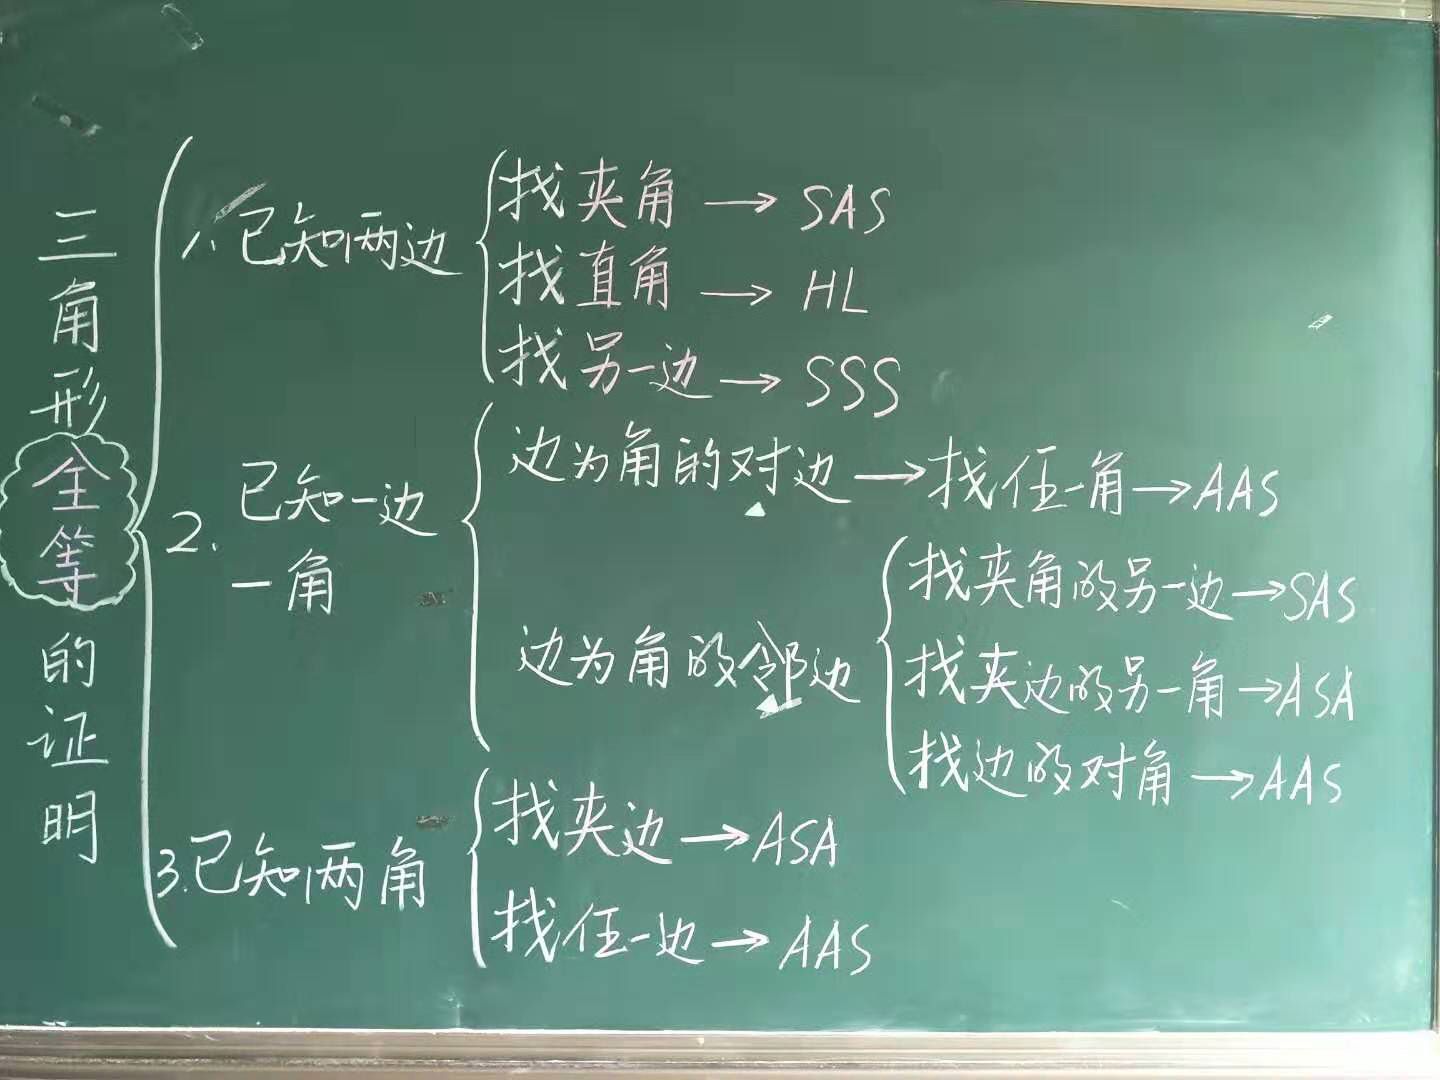 三角形全等的证明
1.已知两边
找夹角→SAS
找直角→HL
找另一边→SSS
2.已知一边
一角
边为角的对边→找任一角→AAS
边为角的邻边
找夹角的另一边→SAS
找夹边的另一角→ASA
找边的对角→AAS
3.已知两角
找夹边→ASA
找任一边→AAS